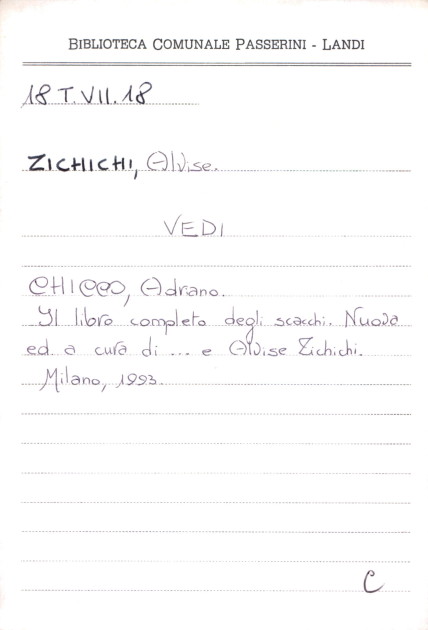 BIBLIOTECA COMUNALE PASSERINI - LANDI
18 T.VII.18
ZICHICHI, Alvise.
VEDI
CHICCO, Adriano.
Il libro completo degli scacchi. Nuova
ed. a cura di ... e Alvise Zichichi.
Milano, 1993.
C